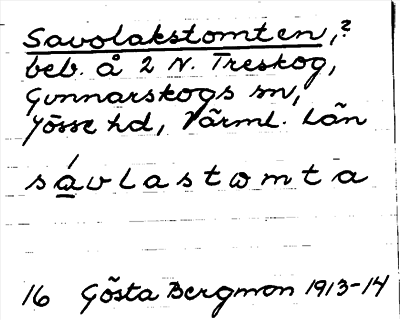 Savolakstomten,?
beb. å 2 N. Treskog,
Gunnarskogs sn,
Jösse hd, Värml. Län
sávlastomta
16 Gösta Bergman 1913-14